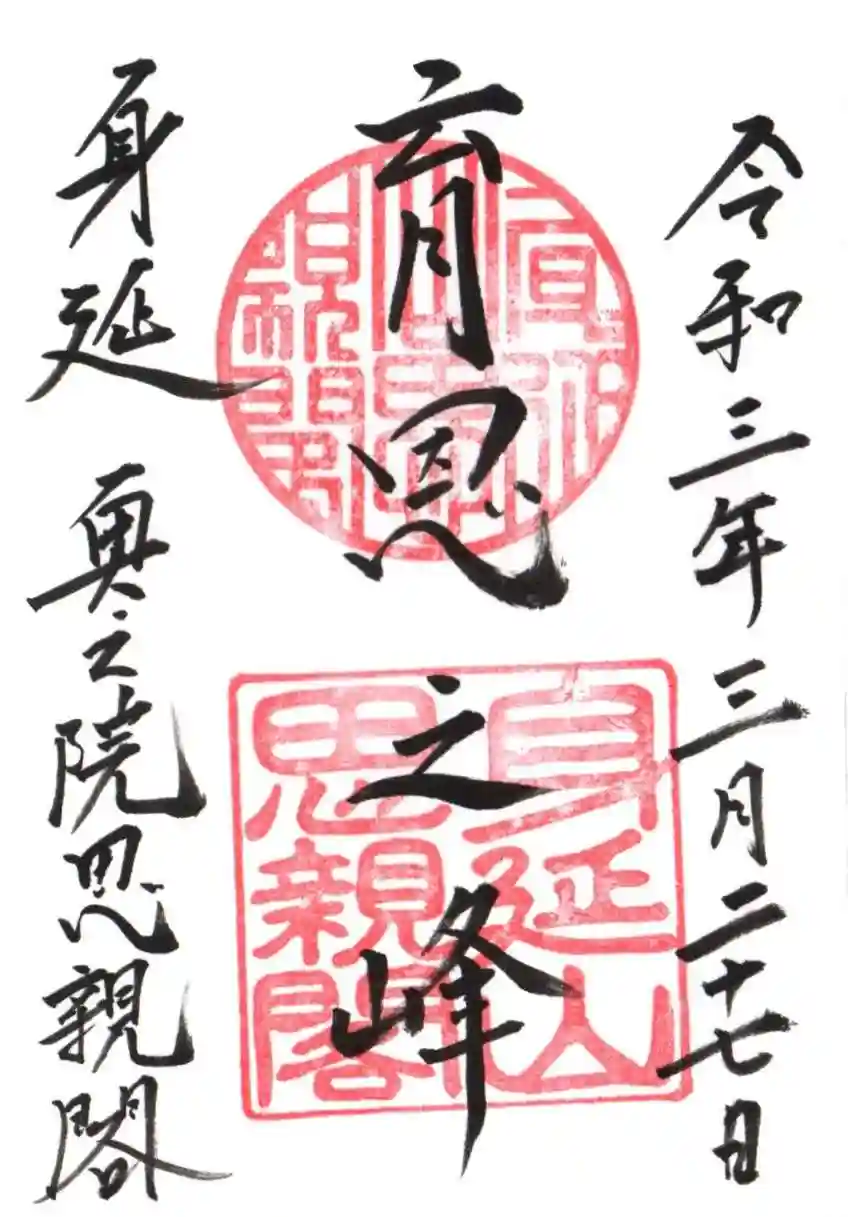 令和三年三月二十七日
育恩之峰
身延山
思親閣
身延 奥之院思親閣